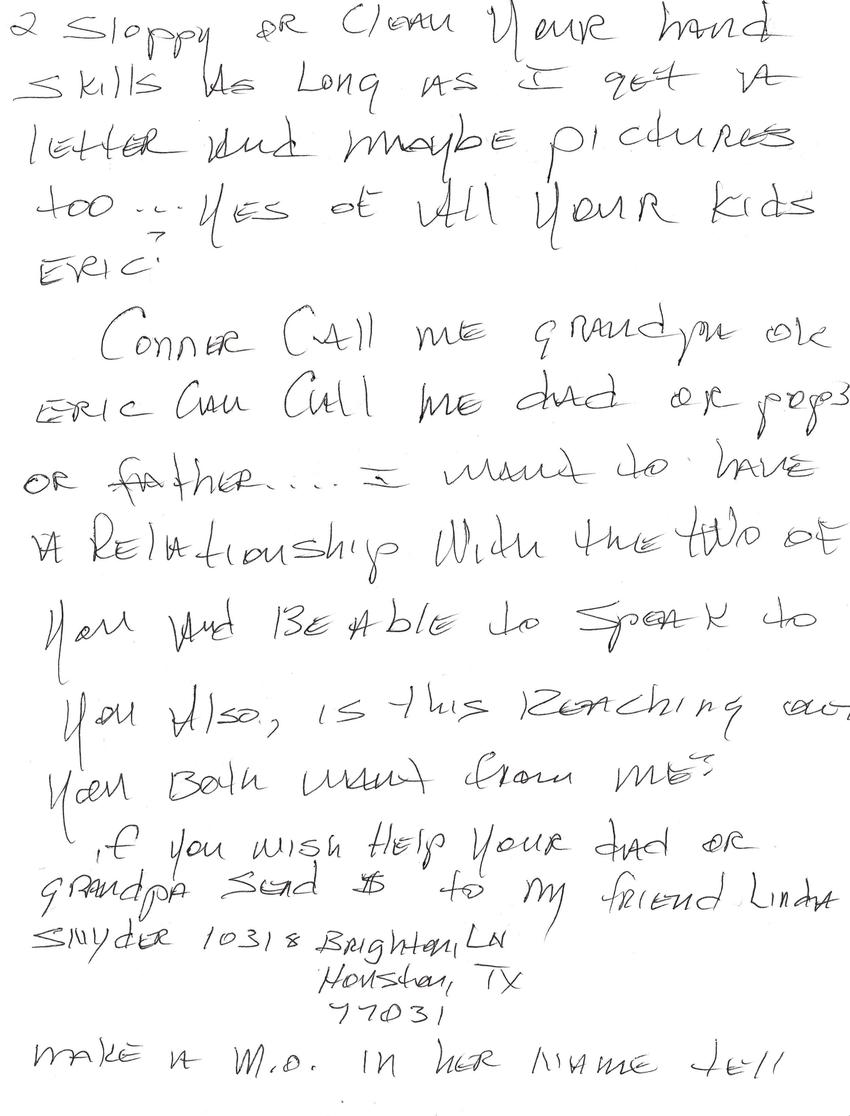 2 Sloppy OR Clean Your hand
skills As Long AS I get A
letter And maybe pictures
too ... Yes of All Your kids
ERIC?
Conner Call me grandpa OK
ERIC Can Call me dad or pops
OR father.... I want to have
A Relationship With the two of
You And BE Able to Speak to
You Also, is this Reaching out
You Both want from me?
if you wish Help Your dad OR
grandpa Send $ to my friend Linda
Snyder 10318 Brighton, LN
Houston, TX
77031
make A M.O. in her NAME tell